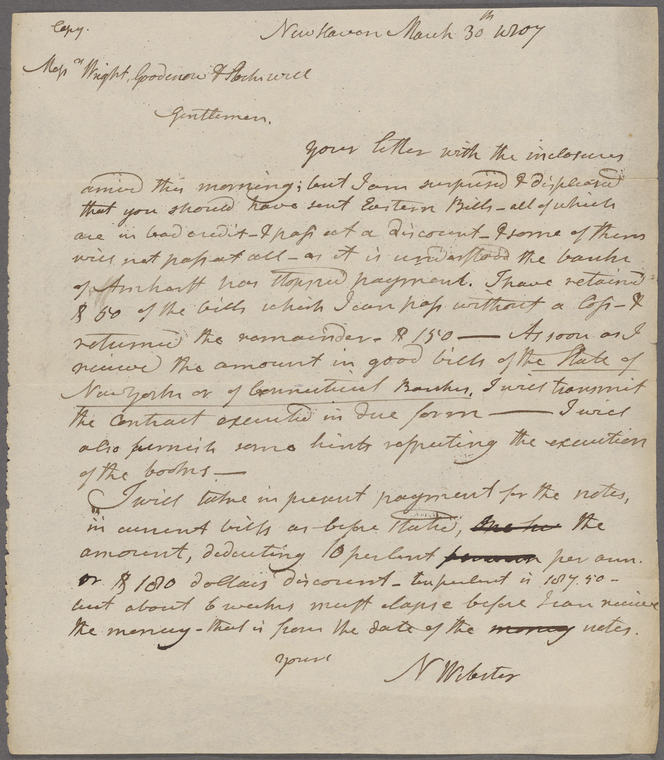 Copy.
New Haven March 30th 1807
Messrs Wright, Goodenow & Stockwell
Gentlemen,
Your letter with the inclosures
arrived this morning; but I am surprised & displeased
that you should have sent Eastern Bills - all of which
are in bad credit - & pass at a discount - & some of them
will not pass at all - as it is understood the bank
of Amherst has stopped payment. I have retained
$ 50 of the bills which I can pass without a loss - &
returned the remainder - $ 150 — As soon as I
receive the amount in good bills of the State of
New York or of Connecticut Banks, I will transmit
the contract executed in due form — I will
also furnish some hints respecting the execution
of the books —
I will take in present payment for the notes,
in current bills as before stated, the
amount, deducting 10 per cent per ann.
or $ 180 dollars discount - ten per cent is 187.50 -
but about 6 weeks must elapse before I can receive
the money - that is from the date of the money notes.
Yours
N Webster